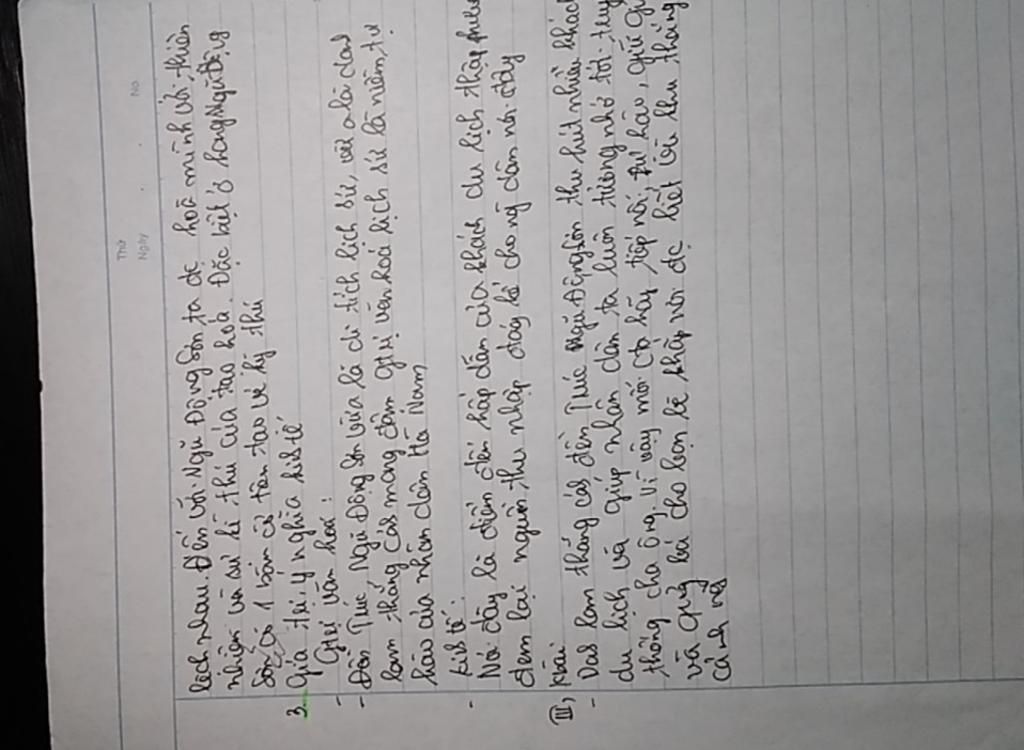 Thứ
Ngày
No
lệch nhau. Đến với Ngũ Động Sơn ta đc hoà mình với thiên
nhiên và sự kì thú của tạo hoá. Đặc biệt ở hang Ngũ Động
Sơn có 1 bàn cờ tiên tạo vẻ kỳ thú
3. Giá trị, ý nghĩa kinh tế
- Gtrị văn hoá:
- Đền Trúc, Ngũ Động Sơn vừa là di tích lịch sử, vừa là danh
lam thắng cảnh mang đậm gtrị văn hoá lịch sử là niềm tự
hào của nhân dân Hà Nam
- Kinh tế:
Nơi đây là điểm đến hấp dẫn của khách du lịch thập phương
đem lại nguồn thu nhập đáng kể cho ng dân nơi đây
III, Kbài
- Danh lam thắng cảnh đền Trúc Ngũ Động Sơn thu hút nhiều khách
du lịch và giúp nhân dân ta luôn tưởng nhớ tới truyền
thống cha ông. Vì vậy mỗi hãy tiếp nối, tự hào, giữ gìn
và quảng bá cho bạn bè khắp nơi đc biết tới khu thắng
cảnh này